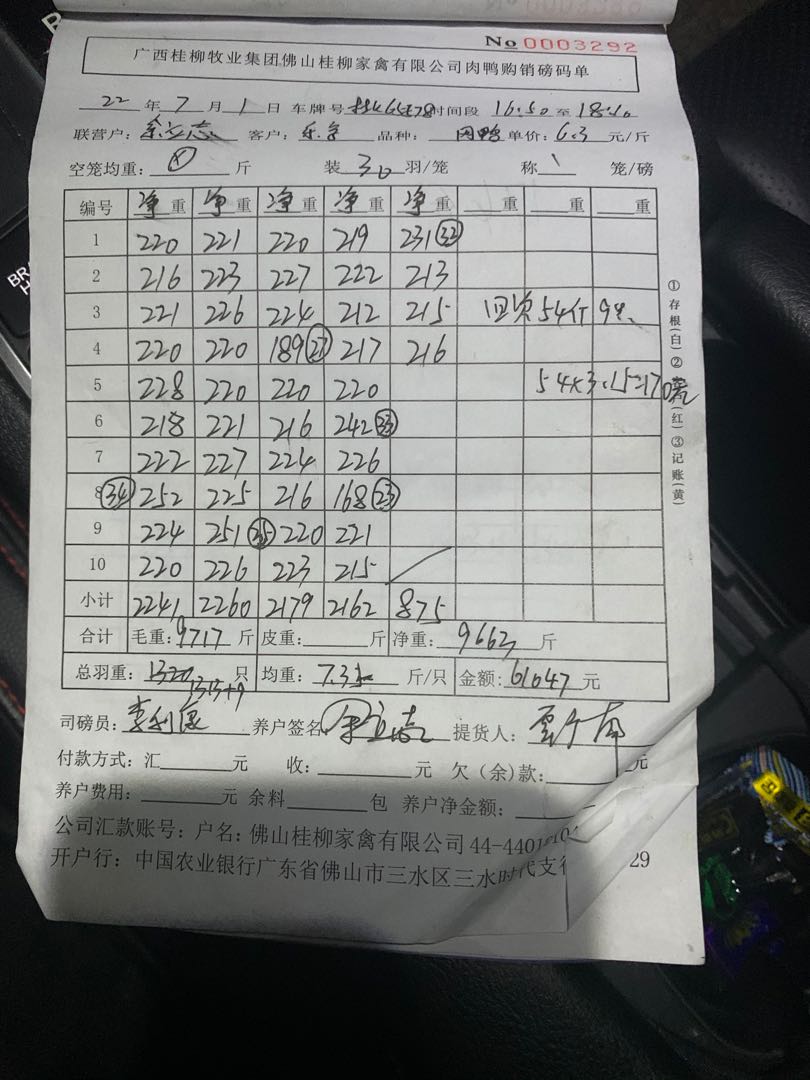 No 0003292
广西桂柳牧业集团佛山桂柳家禽有限公司肉鸭购销磅码单
22 年 7 月 1 日 车牌号 时间段 16:50 至 18:10
联营户: 客户: 品种: 单价: 6.3 元/斤
空笼均重: 斤 装 30 羽/笼 称 1 笼/磅
编号 净重 净重 净重 净重 净重 重 重 重
1 220 221 220 219 231 32
2 216 223 227 222 213
3 221 226 224 212 215 54斤
4 220 220 189 27 217 216
5 228 220 220 220 54×3.15=170
6 218 221 216 242 33
7 222 227 224 226
8 34 252 225 216 168 23
9 224 251 35 220 221
10 220 226 223 215
小计 2241 2260 2179 2162 875
合计 毛重: 9717 斤 皮重: 斤 净重: 9663 斤
总羽重: 1320 只 均重: 斤/只 金额: 61047 元
1313+9
司磅员: 养户签名 提货人:
付款方式: 汇 元 收: 元 欠(余)款: 元
养户费用: 元 余料 包 养户净金额:
公司汇款账号: 户名: 佛山桂柳家禽有限公司 44-4401
开户行: 中国农业银行广东省佛山市三水区三水时代支行 29
①存根(白)② (红)③记账(黄)